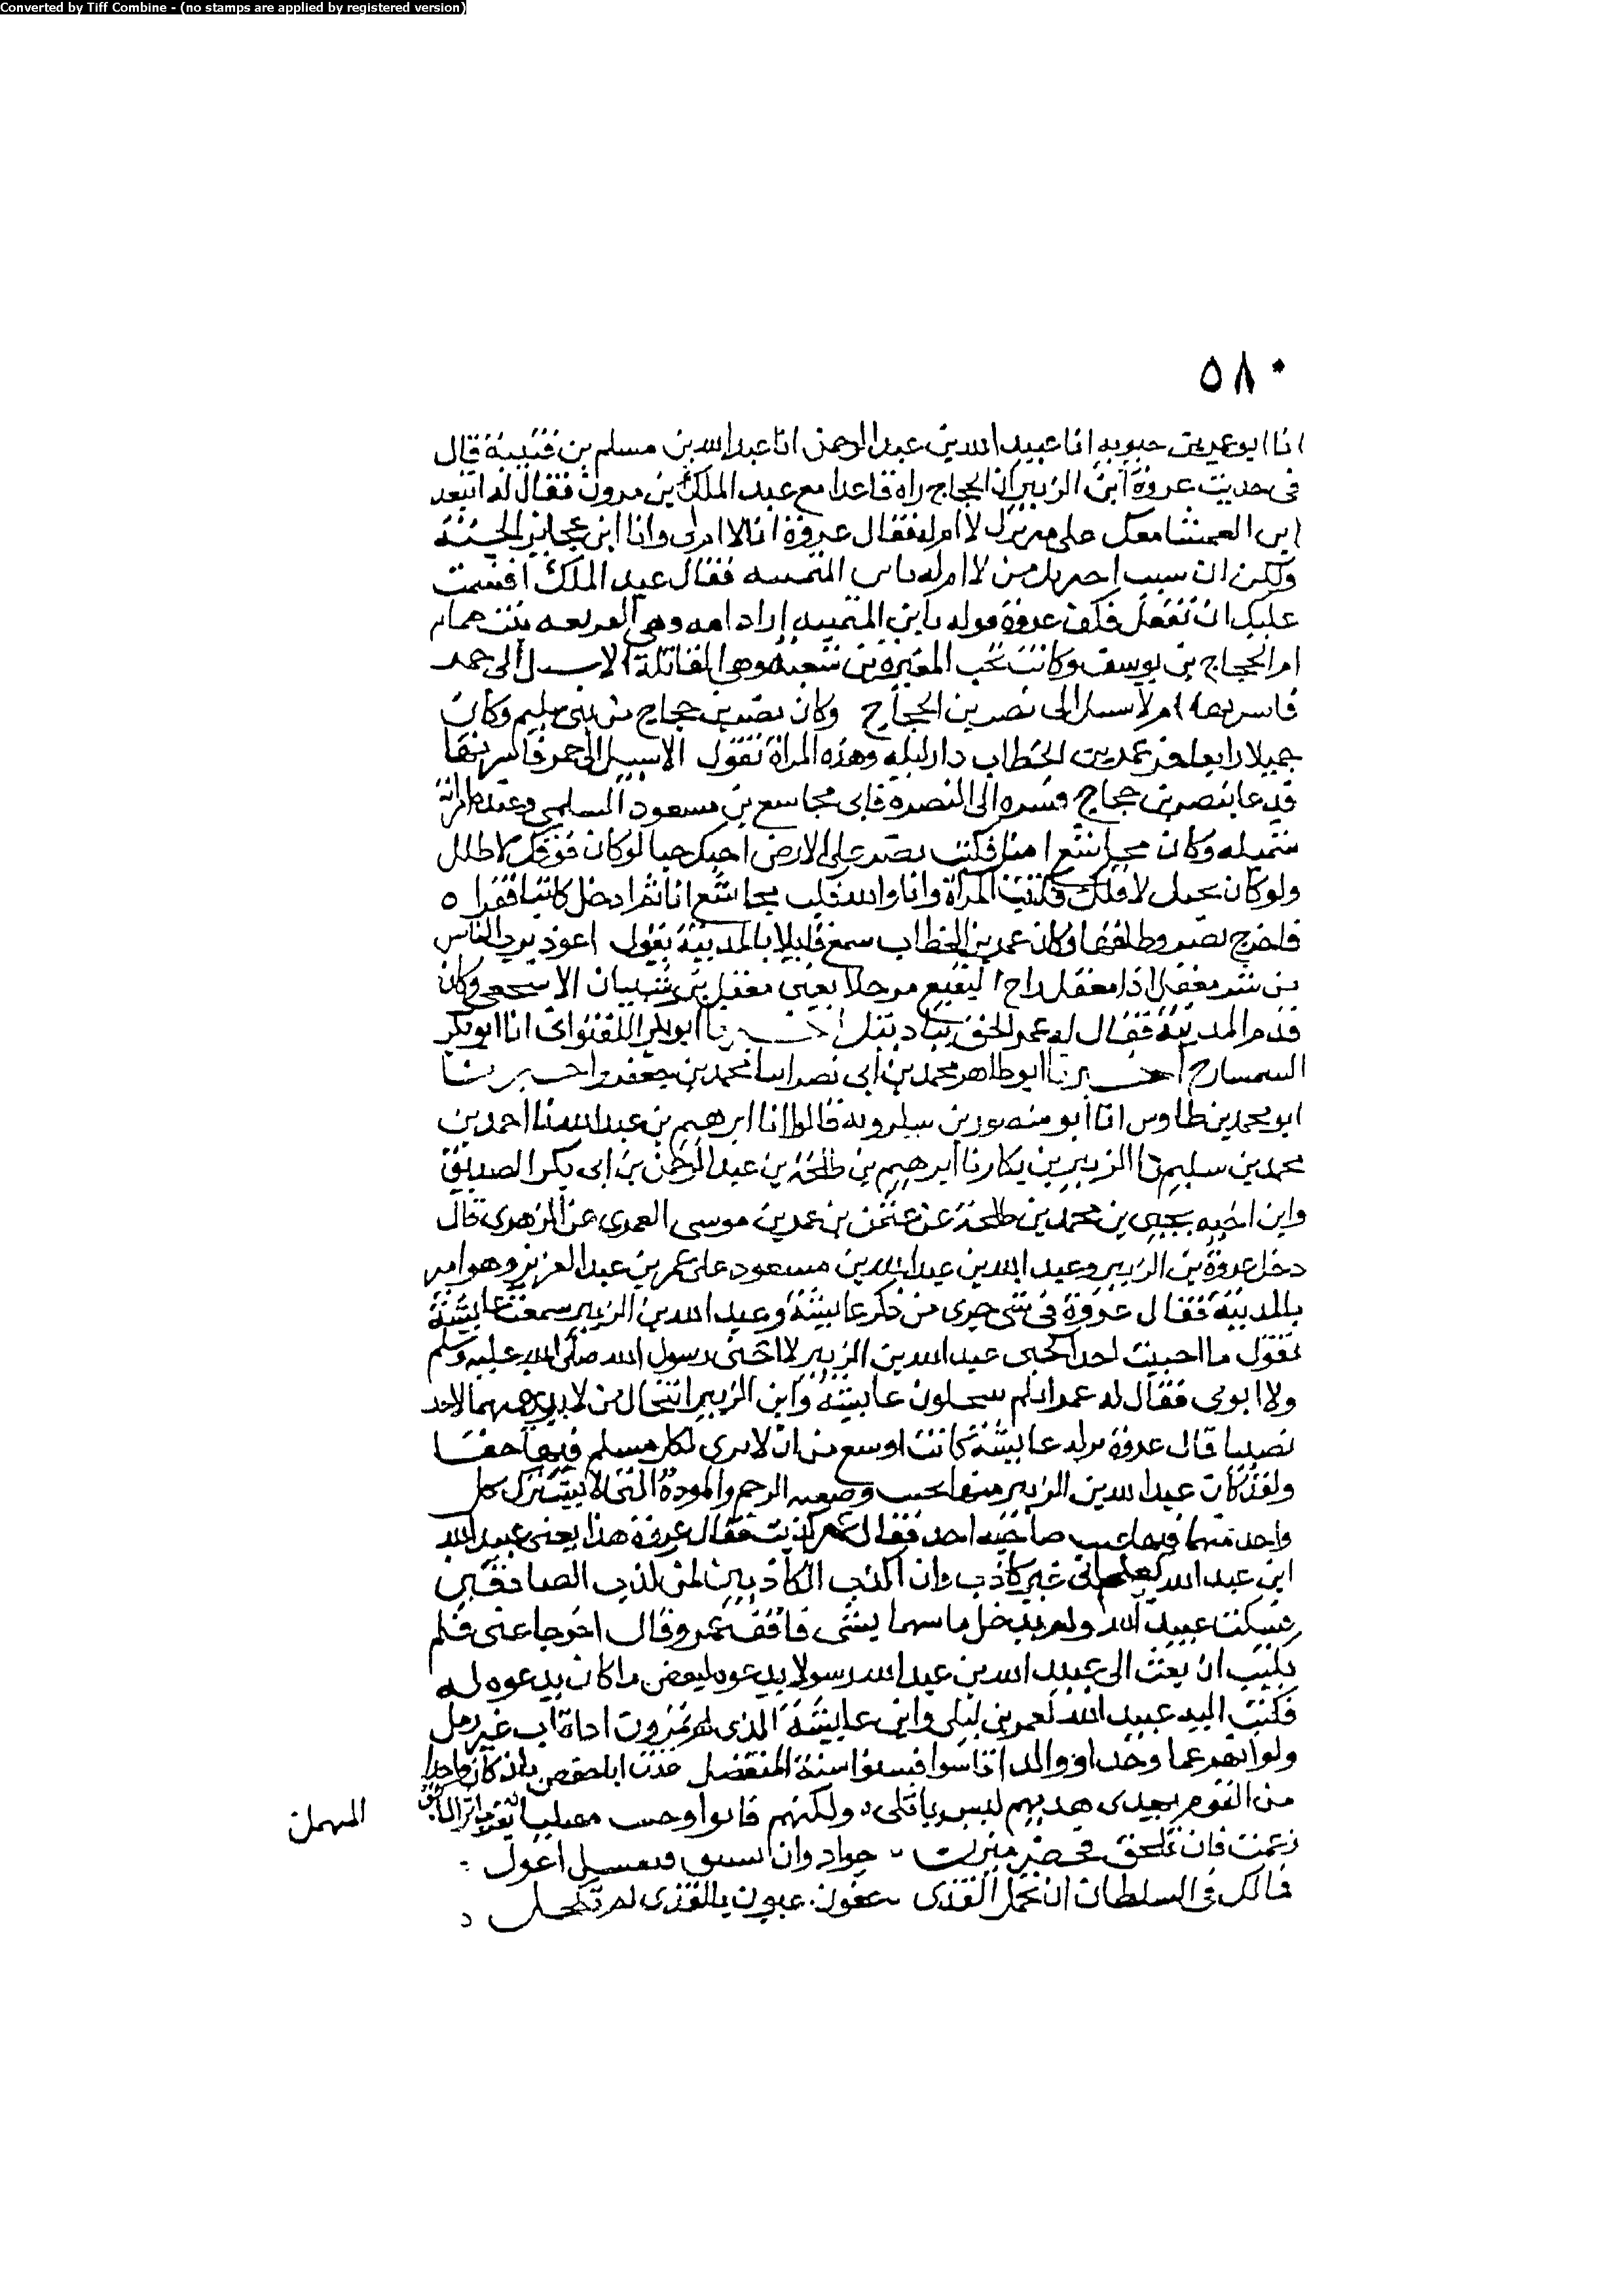 Converted by Tiff Combine - (no stamps are applied by registered version)
٥٨٠
انا ابو عمر بن حبويه انا عبيد الله بن عبد الرحمن انا عبد الله بن مسلم بن قتيبة قال
فى حديث عروة ابن الزبير ان الحجاج راه قاعدا مع عبد الملك بن مرون فقال له اتقعد
ابن العمشا معك على سريرك لا ام له فقال عروة انا لا ام لى وانا ابن عجايز الجنة
ولكن ان سيت اخبرتك من لا ام له يابن المتمنيه فقال عبد الملك اقسمت
عليك ان تفعل فكف عروة قوله يا ابن المتمنيه اراد امه وهى الفريعه بنت همام
ام الحجاج بن يوسف وكانت تحت المغيرة بن شعبة وهى القائلة الا سبيل الى خمر
فاسربها ام لا سبيل الى نصر بن الحجاج وكان نصر بن حجاج من بنى سليم وكان
جميلا رايعا فمر عمر بن الخطاب ذات ليله وهذه المراة تقول الا سبيل الى خمر فاشربها
فدعا بنصر بن حجاج فسيره الى البصرة فاتى مجاشع بن مسعود السلمى وعنده امراته
شميله وكان مجاشع اميا فكتب نصر على الارض احبك حبا لو كان فوقك لاظلك
ولو كان تحتك لاقلك فكتبت المراة وانا والله فكب مجاشع انا ثم ادخل كاتبا فقرا ه
فاخرج نصر وطلقها وكان عمر بن الخطاب سمع قايلا بالمدينة يقول اعوذ برب الناس
من شر معقل اذا معقل راح البقيع مرجلا يعنى معقل بن سنان الاشجعى وكان
قدم المدينة فقال له عمر الحق بباديتك اخبرنا ابو بكر اللفتوانى انا ابو بكر
السمسار ح اخبرنا ابو طاهر محمد بن ابى نصر انبا محمد بن جعفر ح اخبرنا
ابو محمد بن طاوس انا ابو منصور بن شكرويه قالوا انا ابرهيم بن عبد الله نا احمد بن
محمد بن سليم نا الزبير بن بكار نا ابرهيم بن طلحة بن عبد الرحمن بن ابى بكر الصديق
وابن اخيه يحيى بن محمد بن طلحة عن عثمن بن عمر بن موسى العمرى عن الزهرى قال
دخل عروة بن الزبير وعبيد الله بن عبد الله بن مسعود على عمر بن عبد العزيز وهو امير
بالمدينة فقال عروة فى شى جرى من ذكر عايشة وعبد الله بن الزبير سمعت عايشة
تقول ما احببت احدا كحبى عبد الله بن الزبير لا اعنى رسول الله صلى الله عليه وسلم
ولا ابوى فقال له عمر انكم تنتحلون عايشة وابن الزبير انتحال من لا يرى معهما لاحد
نصيبا قال عروة بركة عايشة كانت اوسع من ان لا يرى لكل مسلم فيها حقا
ولقد كان عبد الله بن الزبير منها بحيث وضعه الرحم والمودة التى لا يشرك كل
واحد منهما فيها عند صاحبه احد فقال عمر كذبت فقال عروة هذا يعنى عبيد الله
ابن عبد الله يعلم انى غير كاذب وان اكذب الكاذبين لمن كذب الصادقين
فسكت عبيد الله ولم يدخل بينهما بشى فاففهما عمر وقال اخرجا عنى فلم
يلبث ان بعث الى عبيد الله بن عبد الله رسولا يدعوه لبعض ما كان يدعوه له
فكتب اليه عبيد الله لعمر بن ليلى وابن عايشة الذى لمرون اداه اب غير زمل
ولو انهم عما وجدا ووالدا تاسوا فسنوا سنة المتفضل عذرت ابا حفص بان كان واحدا
من القوم يهدى هديهم ليس ياتلى ولكنهم فاتوا وجيت مصليا تقرب اثر السابق
المهمل
زعمت فان تلحق فحضر مبرز جواد وان تسبق فنفسك اعول
فمالك فى السلطان ان تحمل القذى جفون عيون بالقذى لم تكحل